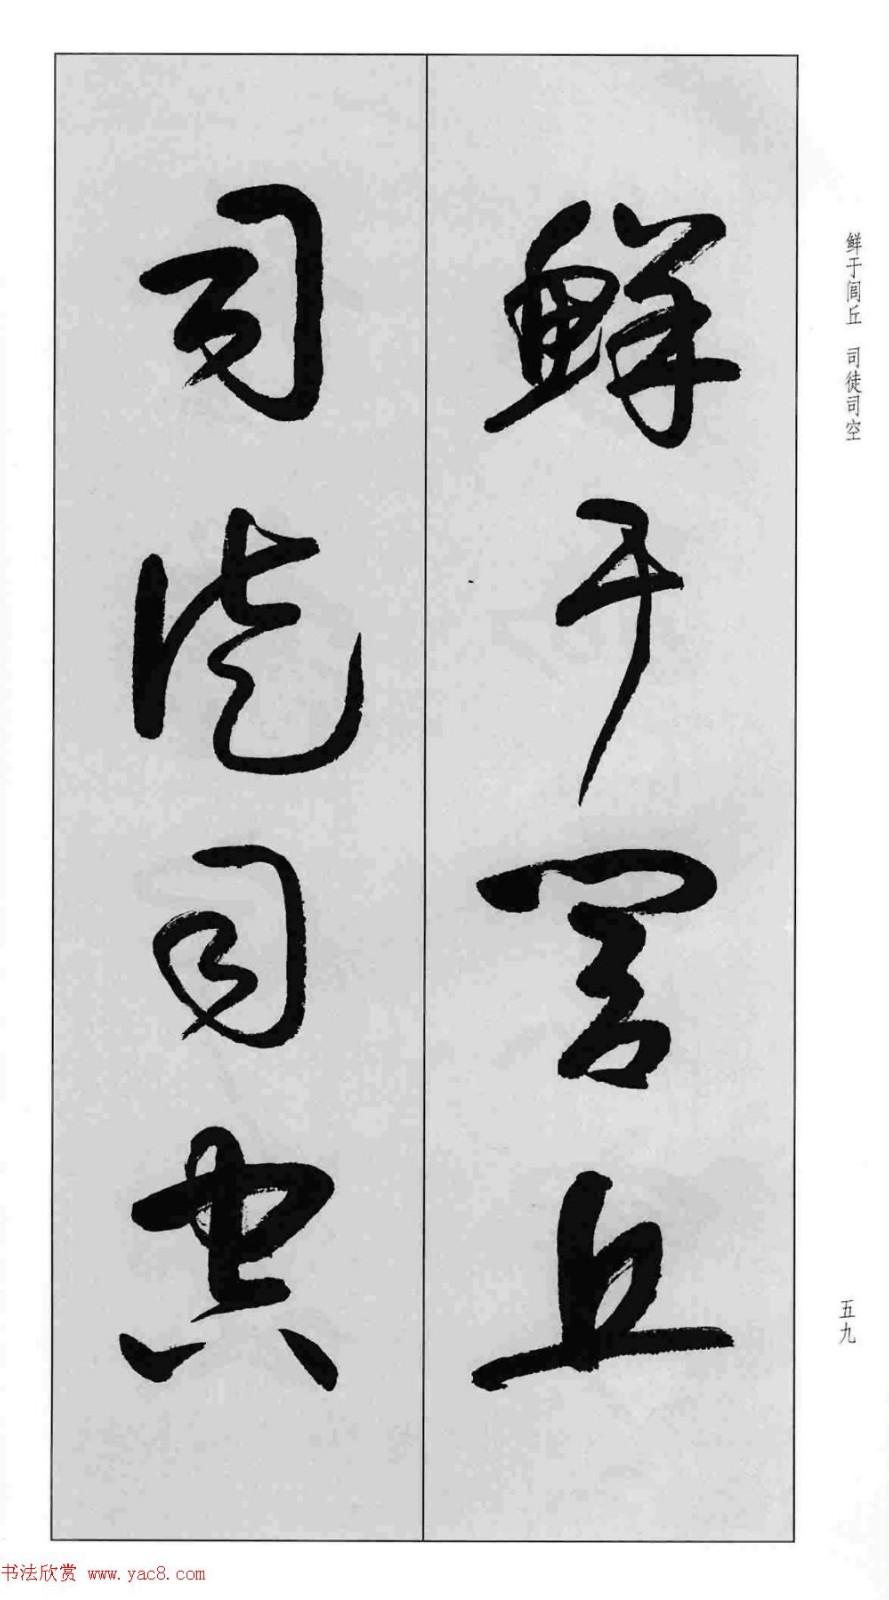 鲜于闾丘 司徒司空
鮮于閭丘
司徒司空
五九
书法欣赏 www.yac8.com